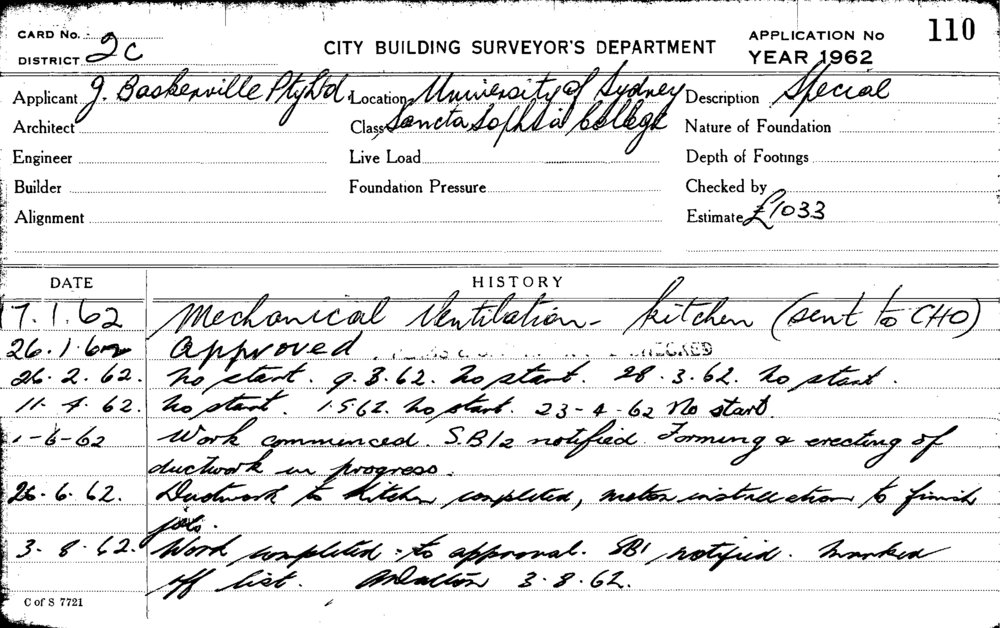 CARD No. 2C
DISTRICT
CITY BUILDING SURVEYOR'S DEPARTMENT
APPLICATION No 110
YEAR 1962
Applicant J. Baskerville Pty Ltd. Location University of Sydney Description Special
Architect Class Sancta Sophia College Nature of Foundation
Engineer Live Load Depth of Footings
Builder Foundation Pressure Checked by
Alignment Estimate £1033
DATE HISTORY
17.1.62 Mechanical Ventilation - kitchen (sent to CHO)
26.1.62 Approved CHECKED
26.2.62. No start. 9.3.62. No start. 28.3.62. No start.
11.4.62. No start. 1.5.62. No start. 23-4-62 No start.
1-6-62 Work commenced. S.B/2 notified. Forming & erecting of
ductwork in progress.
26.6.62. Ductwork to kitchen completed, motor installation to finish
job.
3.8.62. Work completed - to approval. SB1 notified. Marked
off list. 3.8.62.
C of S 7721